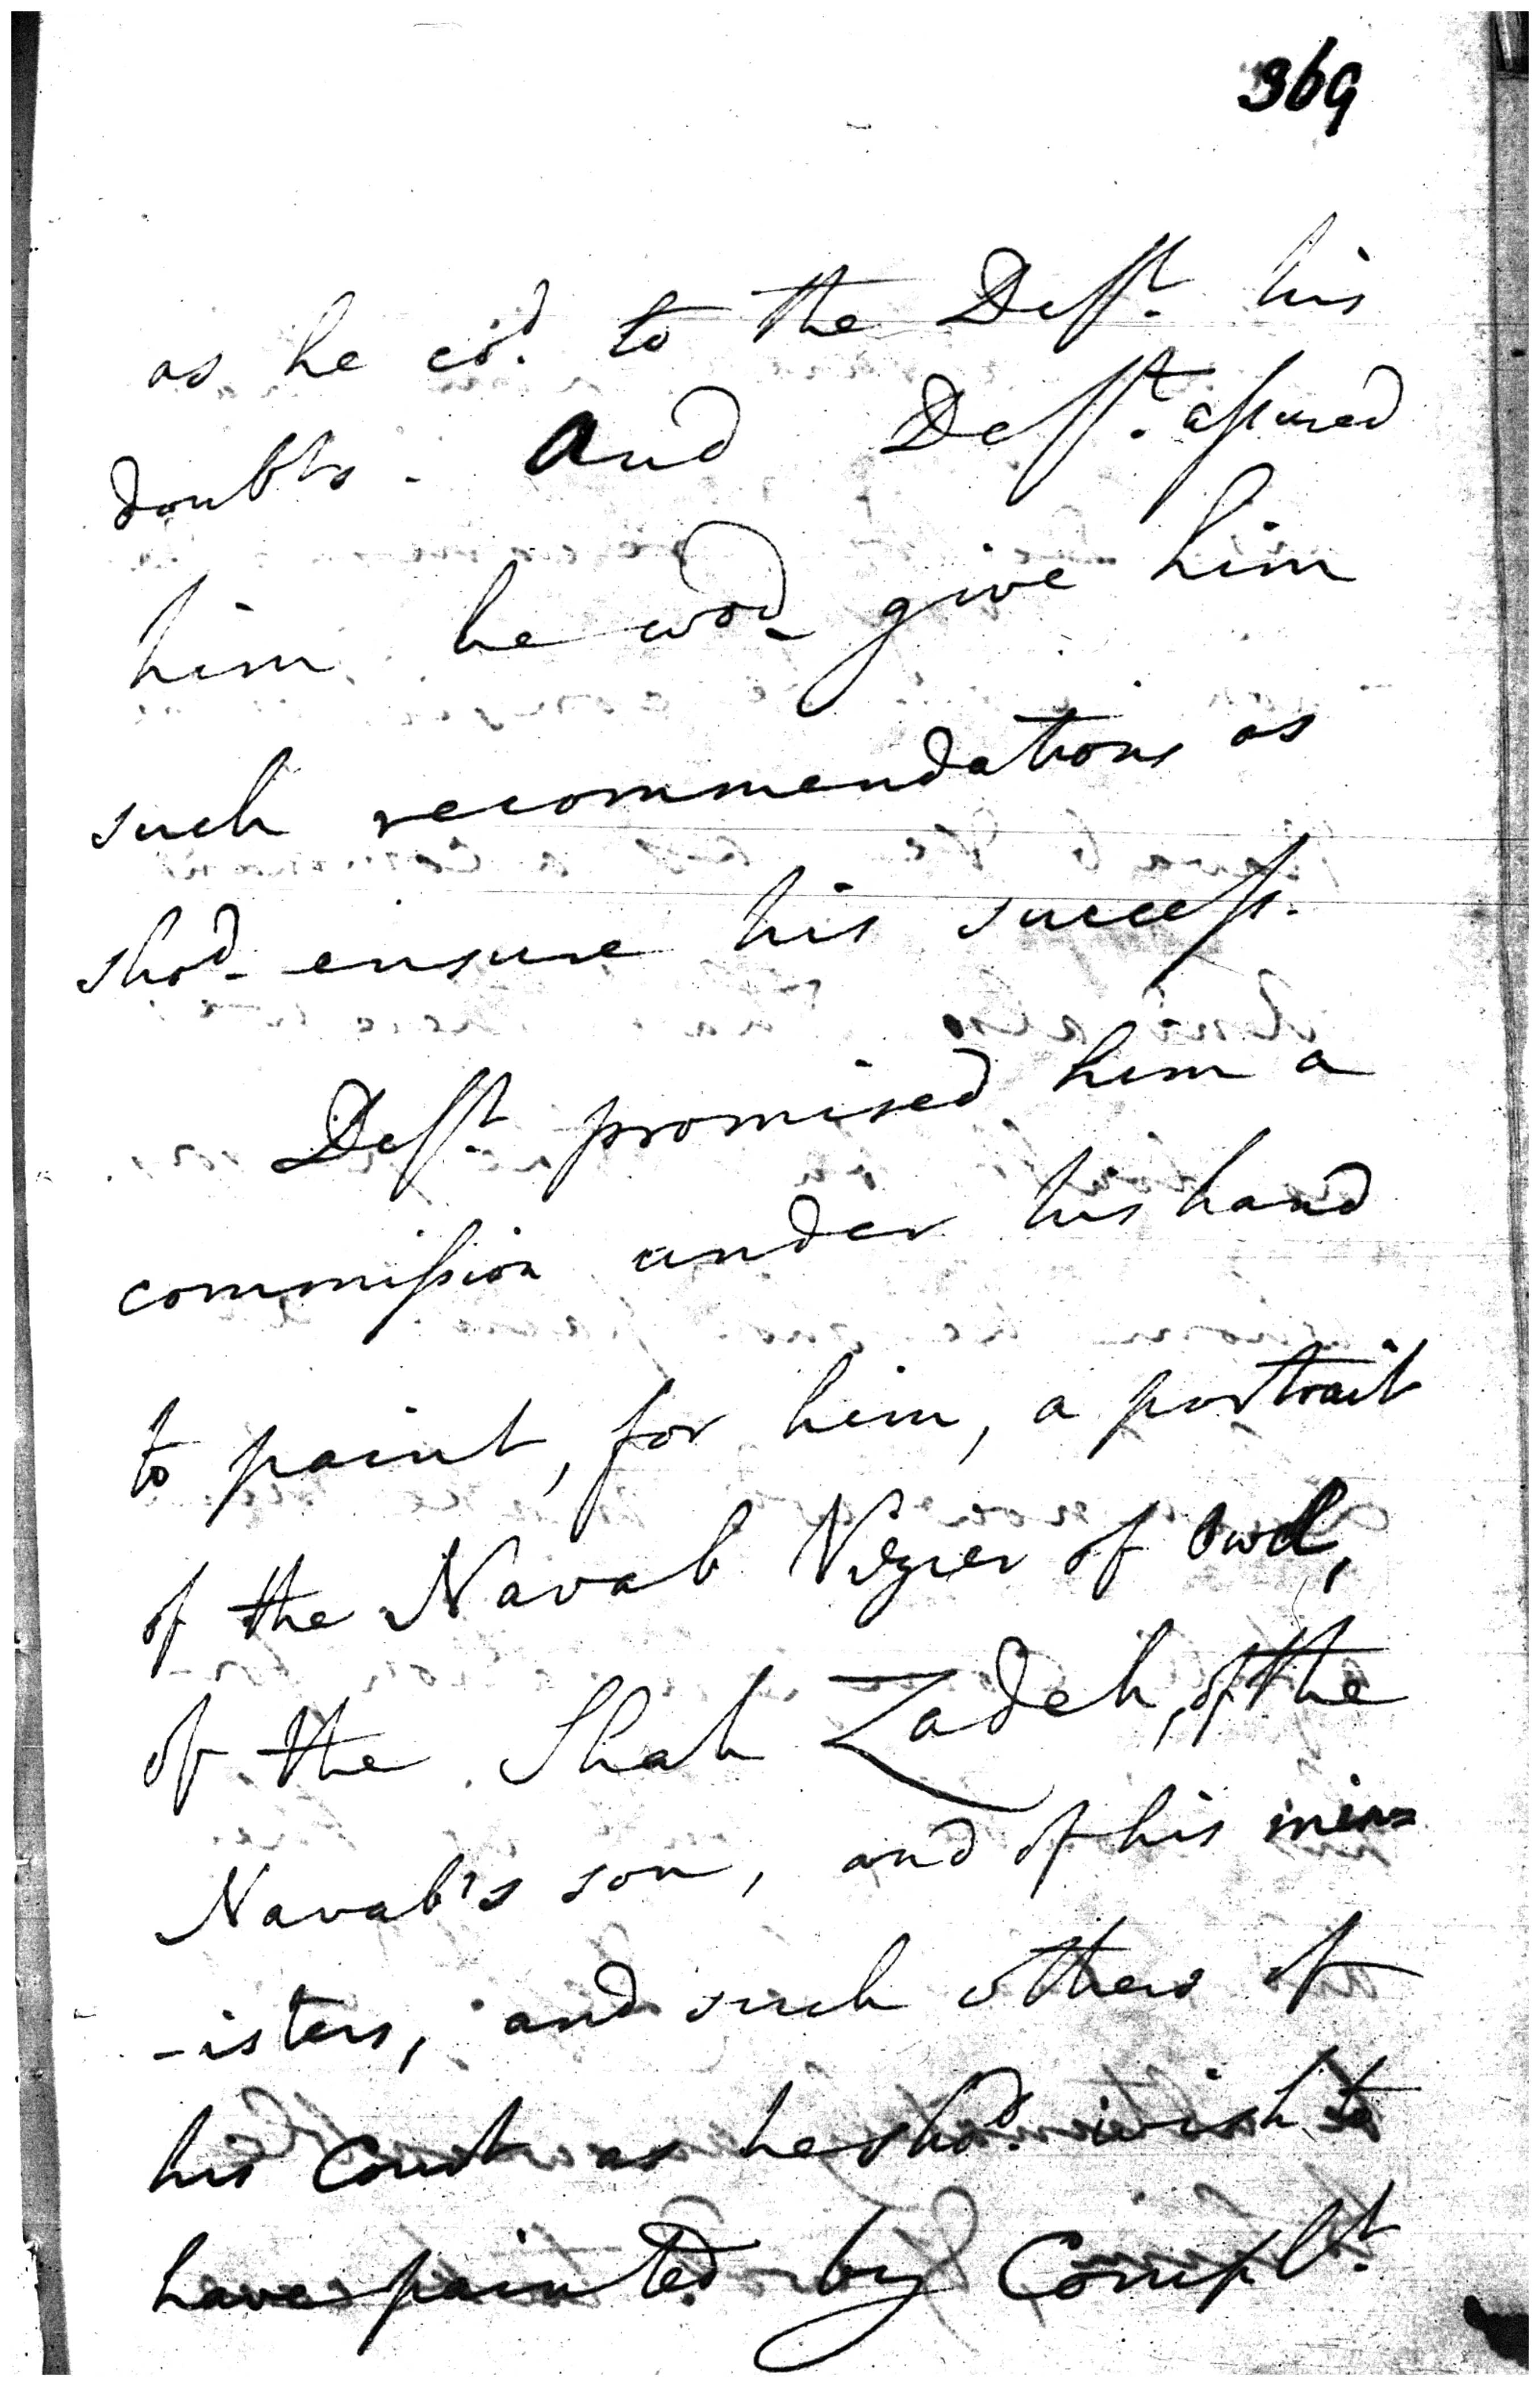 369
as he cd. to the Defft. his
doubts. And Defft. assured
him he wod. give him
such recommendations as
shod. ensure his success.
Defft. promised him a
commission under his hand
to paint, for him, a portrait
of the Navab Vizier of Owd,
of the Shah Zadeh, of the
Navab's son, and of his min=
-isters, and such others of
his Court as he shod. wish to
have painted by Complt.